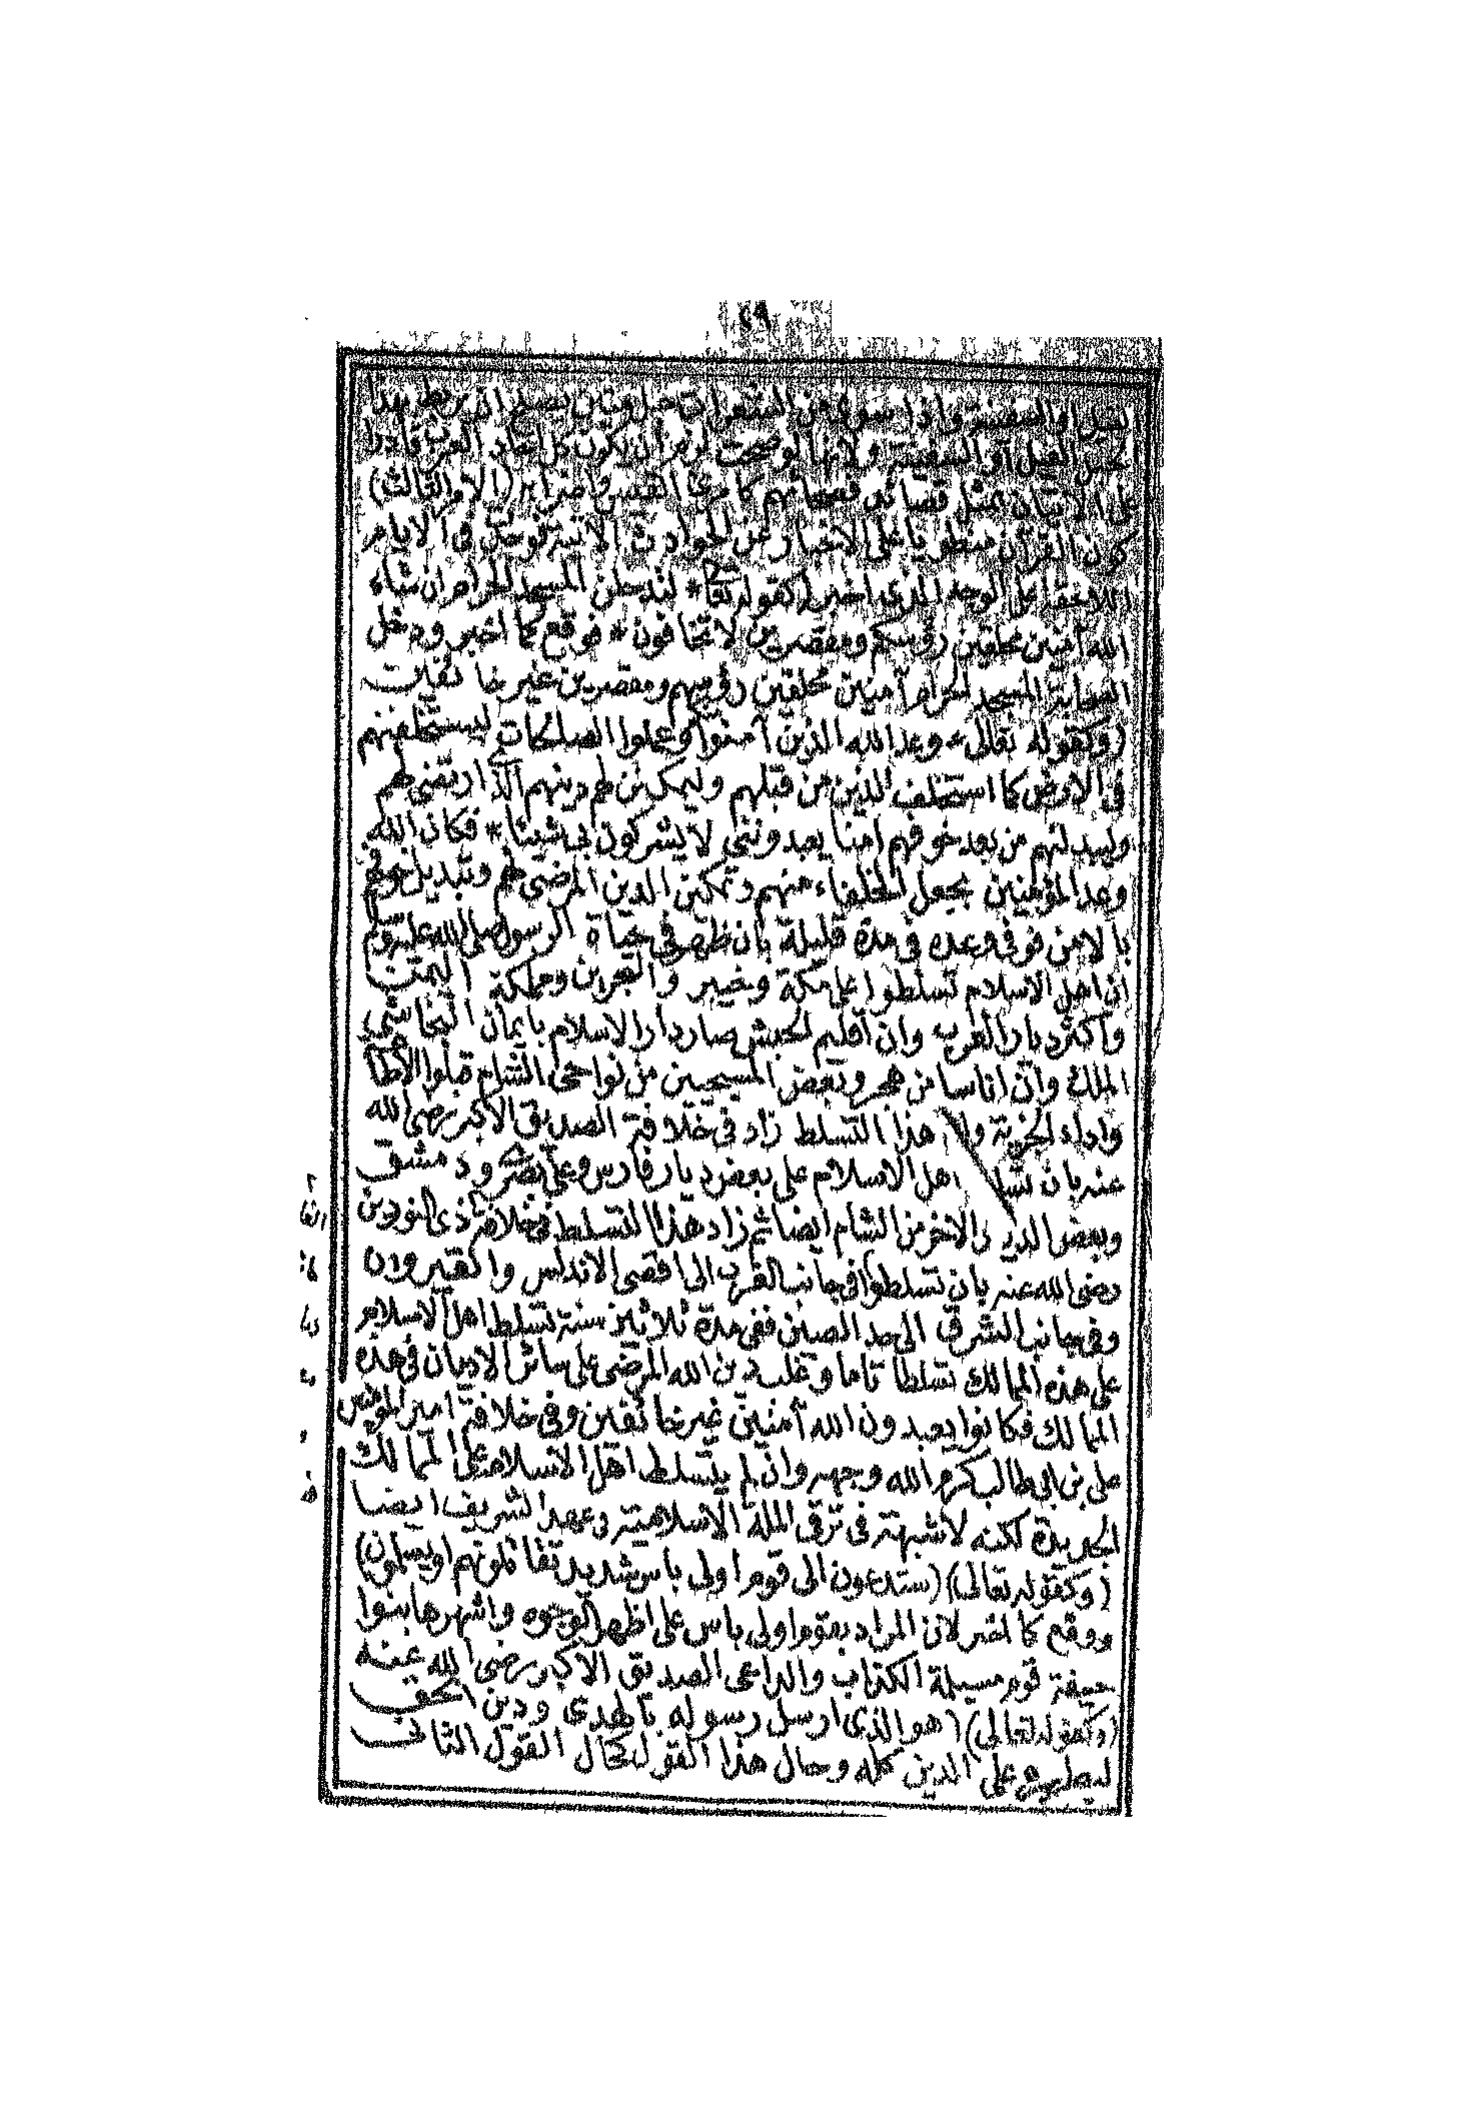 ٤٩
الفيل او السفينة واذا سوى من الشعرات حبل متين يصلح ان يربط بهذا
الحبل الفيل او السفينة ولانها لو صحت لزم ان يكون كل احاد العرب قادرا
على الاتيان بمثل قصائد فصحائهم كامرئ القيس واضرابه (الامر الثالث)
كون القرآن منطويا على الاخبار عن الحوادث الآتية فوجدت فى الايام
اللاحقة على الوجه الذى اخبر كقوله تعا * لتدخلن المسجد الحرام ان شاء
الله آمنين محلقين رؤسكم ومقصرين لا تخافون * فوقع كما اخبر ودخل
الصحابة المسجد الحرام آمنين محلقين رؤسهم ومقصرين غير خائفين
(وكقوله تعالى * وعد الله الذين آمنوا وعملوا الصالحات ليستخلفنهم
فى الارض كما استخلف الذين من قبلهم وليمكنن لهم دينهم الذى ارتضى لهم
وليبدلنهم من بعد خوفهم امنا يعبدوننى لا يشركون بى شيئا * فكان الله
وعد المؤمنين بجعل الخلفاء منهم وتمكين الدين المرضى لهم وتبديل خوفهم
بالامن فوفى وعده فى مدة قليلة بان ظهر فى حياة الرسول صلى الله عليه وسلم
ان اهل الاسلام تسلطوا على مكة وخيبر والبحرين ومملكة اليمن
واكثر ديار العرب وان اقليم الحبش صار دار الاسلام بايمان النجاشى
الملك وان اناسا من هجر وبعض المسيحيين من نواحى الشام قبلوا الاطا
واداء الجزية هذا التسلط زاد فى خلافة الصديق الاكبر رضى الله
عنه بان تسلط اهل الاسلام على بعض ديار فارس وعلى بصرى ودمشق
وبعض الديار الاخر من الشام ايضا ثم زاد هذا التسلط فى خلافة ذى النورين
رضى الله عنه بان تسلطوا فى جانب الغرب الى اقصى الاندلس والقيروان
وفى جانب الشرق الى حد الصين ففى مدة ثلاثين سنة تسلط اهل الاسلام
على هذه الممالك تسلطا تاما وغلب دين الله المرضى على سائر الاديان فى هذه
الممالك فكانوا يعبدون الله آمنين غير خائفين وفى خلافة امير المؤمنين
على بن ابى طالب كرم الله وجهه وان لم يتسلط اهل الاسلام على الممالك
الجديدة لكنه لا شبهة فى ترقى الملة الاسلامية فى عهده الشريف ايضا
(وكقوله تعالى) (ستدعون الى قوم اولى باس شديد تقاتلونهم او يسلمون)
ووقع كما اخبر لان المراد بقوم اولى باس على اظهر الوجوه واشهرها بنوا
حنيفة قوم مسيلمة الكذاب والداعى الصديق الاكبر رضى الله عنه
(وكقوله تعالى) (هو الذى ارسل رسوله بالهدى ودين الحق
ليظهره على الدين كله وحال هذا القول كحال القول الثانى